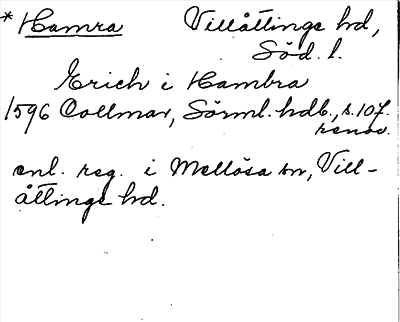 * Hamra Villåttinge hd,
Söd. l.
Erich i Hambra
1596 Collmar, Sörml. hdl., s. 107.
renov.
enl. reg. i Mellösa sn, Vill-
åttinge hd.